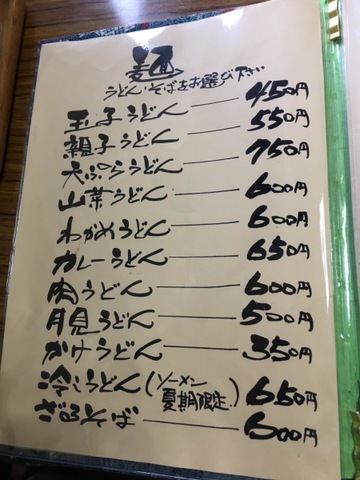 麺
うどん・そばをお選び下さい
玉子うどん 450円
親子うどん 550円
天ぷらうどん 750円
山菜うどん 600円
わかめうどん 600円
カレーうどん 650円
肉うどん 600円
月見うどん 500円
かけうどん 350円
冷しうどん(ソーメン夏期限定) 650円
ざるそば 600円